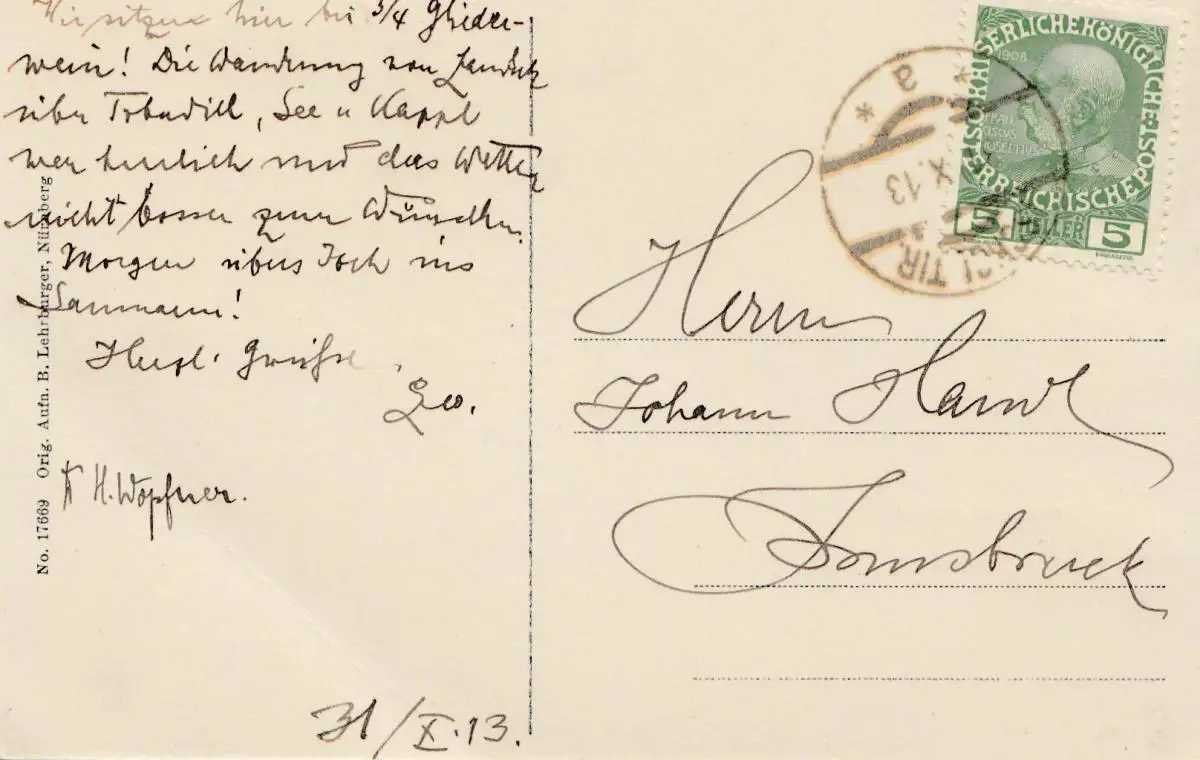 Wir sitzen hier bei 3/4 Glieder-
wein! Die Wanderung von Landeck
über Tobadill, See u Kappl
war herrlich und das Wetter
nicht besser zum Wünschen.
Morgen übers Joch ins
Samnaun!
Herzl. Grüsse
Leo.
H. Wopfner.
31/X.13.
No. 17669 Orig. Aufn. B. Lehrburger, Nürnberg
KAISERLICHEKÖNIGLICHE
ÖSTERREICHISCHEPOST
1908
FRAN
CISCVS
IOSEPHVS
5 HELLER 5
* a *
X 13
TIR
Herrn
Johann Handl
Innsbruck